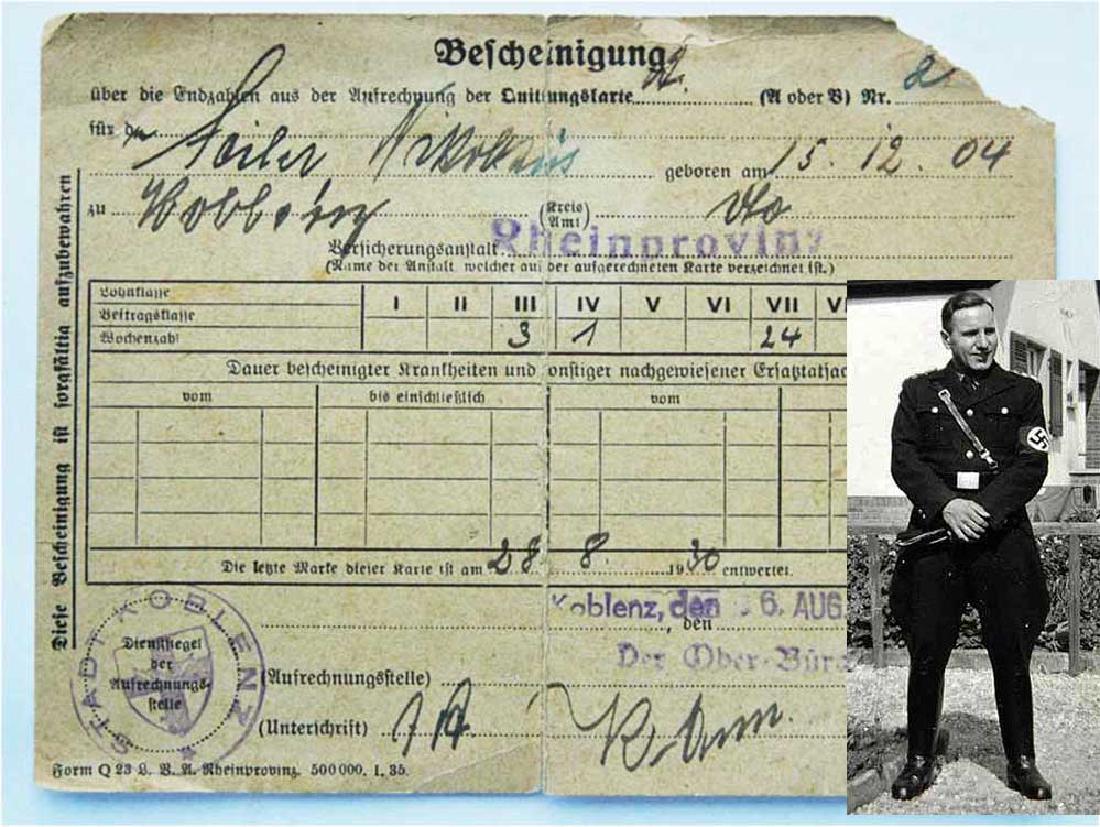 Bescheinigung
über die Endzahlen aus der Aufrechnung der Quittungskarte (A oder B) Nr.
für d Nikolaus geboren am 15. 12. 04
zu (Kreis Amt)
Versicherungsanstalt Rheinprovinz
(Name der Anstalt, welcher auf der aufgerechneten Karte verzeichnet ist.)
Lohnklasse
Beitragsklasse I II III IV V VI VII
Wochenzahl 3 1 24
Dauer bescheinigter Krankheiten und sonstiger nachgewiesener
vom bis einschließlich vom
Die letzte Marke dieser Karte ist am 28. 8. 1930 entwertet.
Koblenz, den 6. AUG.
, den
Der Ober-Bür
(Aufrechnungsstelle)
(Unterschrift)
STADT KOBLENZ
Dienstsiegel
der
Aufrechnungs-
stelle
Form Q 23 L. V. A. Rheinprovinz. 500000. 1. 35.
Diese Bescheinigung ist sorgfältig aufzubewahren